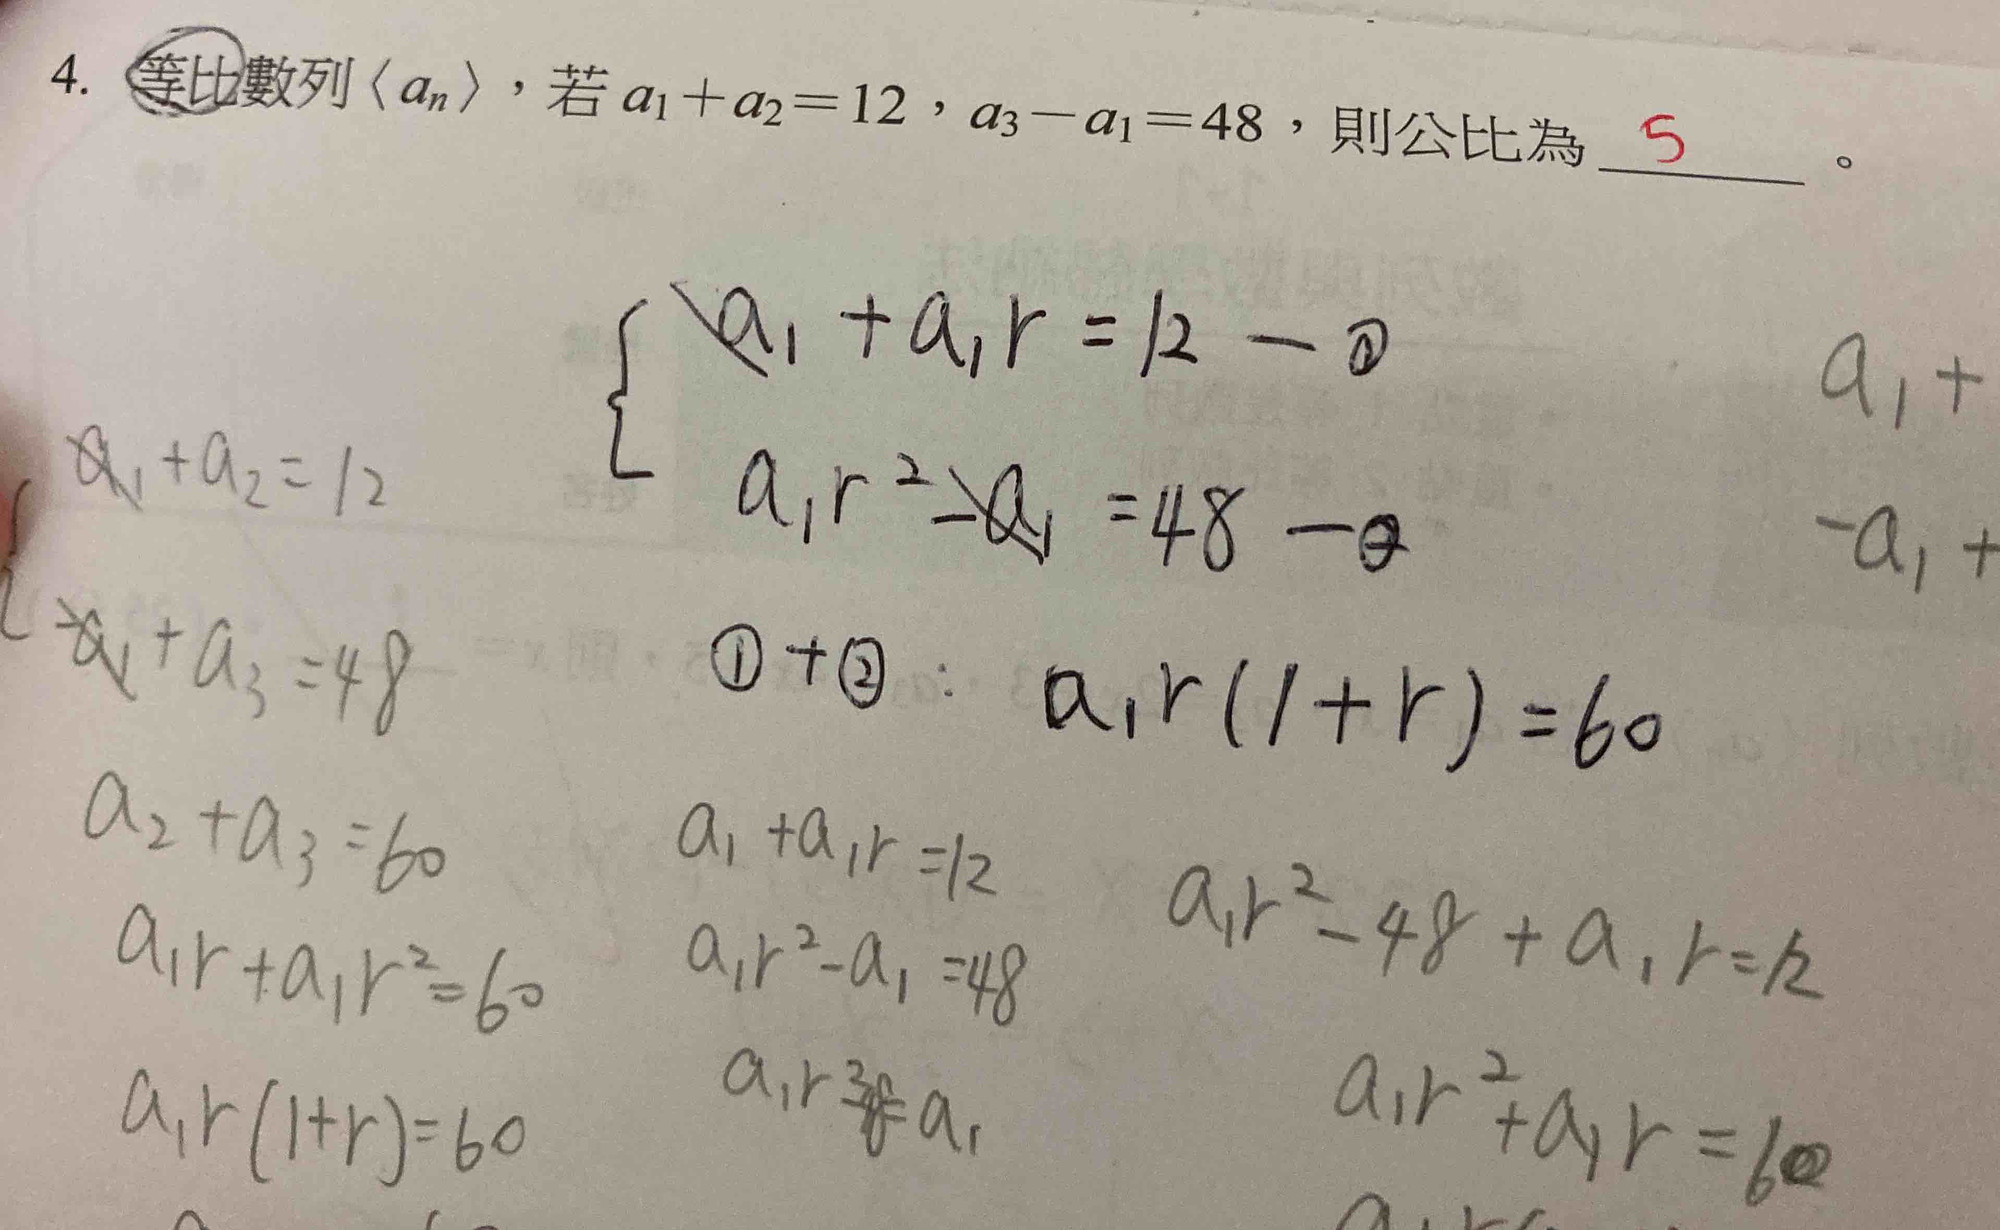 4. 等比數列〈aₙ〉，若 a₁＋a₂＝12，a₃－a₁＝48，則公比為 5 。
a₁ + a₁r = 12 — ①
a₁r² - a₁ = 48 — ②
① + ② : a₁r(1+r) = 60
a₁ + a₂ = 12
-a₁ + a₃ = 48
a₂ + a₃ = 60
a₁r + a₁r² = 60
a₁r(1+r) = 60
a₁ + a₁r = 12
a₁r² - a₁ = 48
a₁r² - 48 + a₁r = 12
a₁r² + a₁r = 60
a₁ +
-a₁ +